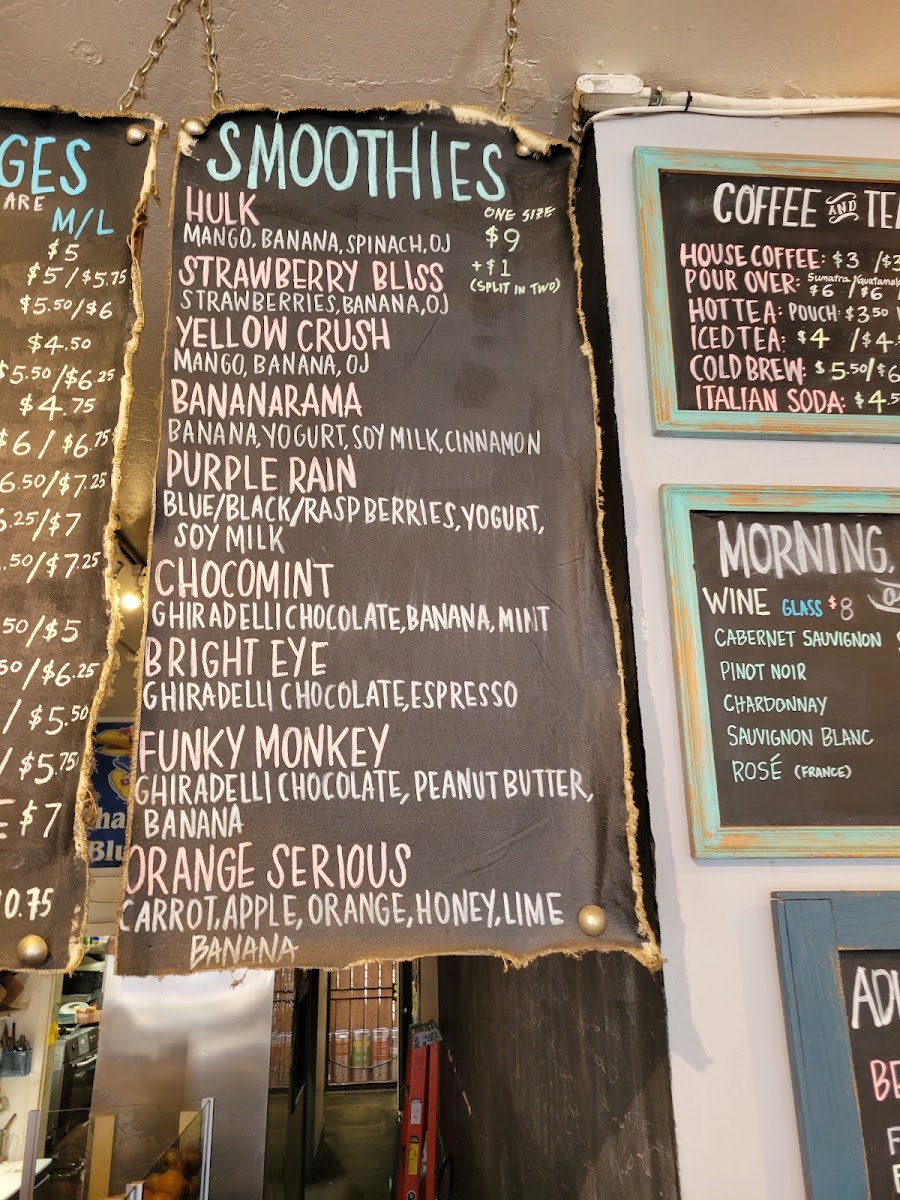 GES
ARE
M/L
$5
$5/$5.75
$5.50/$6
$4.50
$5.50/$6.25
$4.75
$6/$6.75
6.50/$7.25
6.25/$7
.50/$7.25
50/$5
50/$6.25
/$5.50
/$5.75
$7
10.75
SMOOTHIES
ONE SIZE
$9
+$1
(SPLIT IN TWO)
HULK
MANGO, BANANA, SPINACH, OJ
STRAWBERRY BLISS
STRAWBERRIES, BANANA, OJ
YELLOW CRUSH
MANGO, BANANA, OJ
BANANARAMA
BANANA, YOGURT, SOY MILK, CINNAMON
PURPLE RAIN
BLUE/BLACK/RASPBERRIES, YOGURT,
SOY MILK
CHOCOMINT
GHIRADELLI CHOCOLATE, BANANA, MINT
BRIGHT EYE
GHIRADELLI CHOCOLATE, ESPRESSO
FUNKY MONKEY
GHIRADELLI CHOCOLATE, PEANUT BUTTER,
BANANA
ORANGE SERIOUS
CARROT, APPLE, ORANGE, HONEY, LIME
BANANA
COFFEE AND TE
HOUSE COFFEE: $3 /$3
POUR OVER: Sumatra $6 /Guatamala $6
HOT TEA: POUCH: $3.50
ICED TEA: $4 /$4.
COLD BREW: $5.50/$6
ITALIAN SODA: $4.5
MORNING,
WINE GLASS $8
CABERNET SAUVIGNON
PINOT NOIR
CHARDONNAY
SAUVIGNON BLANC
ROSÉ (FRANCE)
AD
BE
Blu